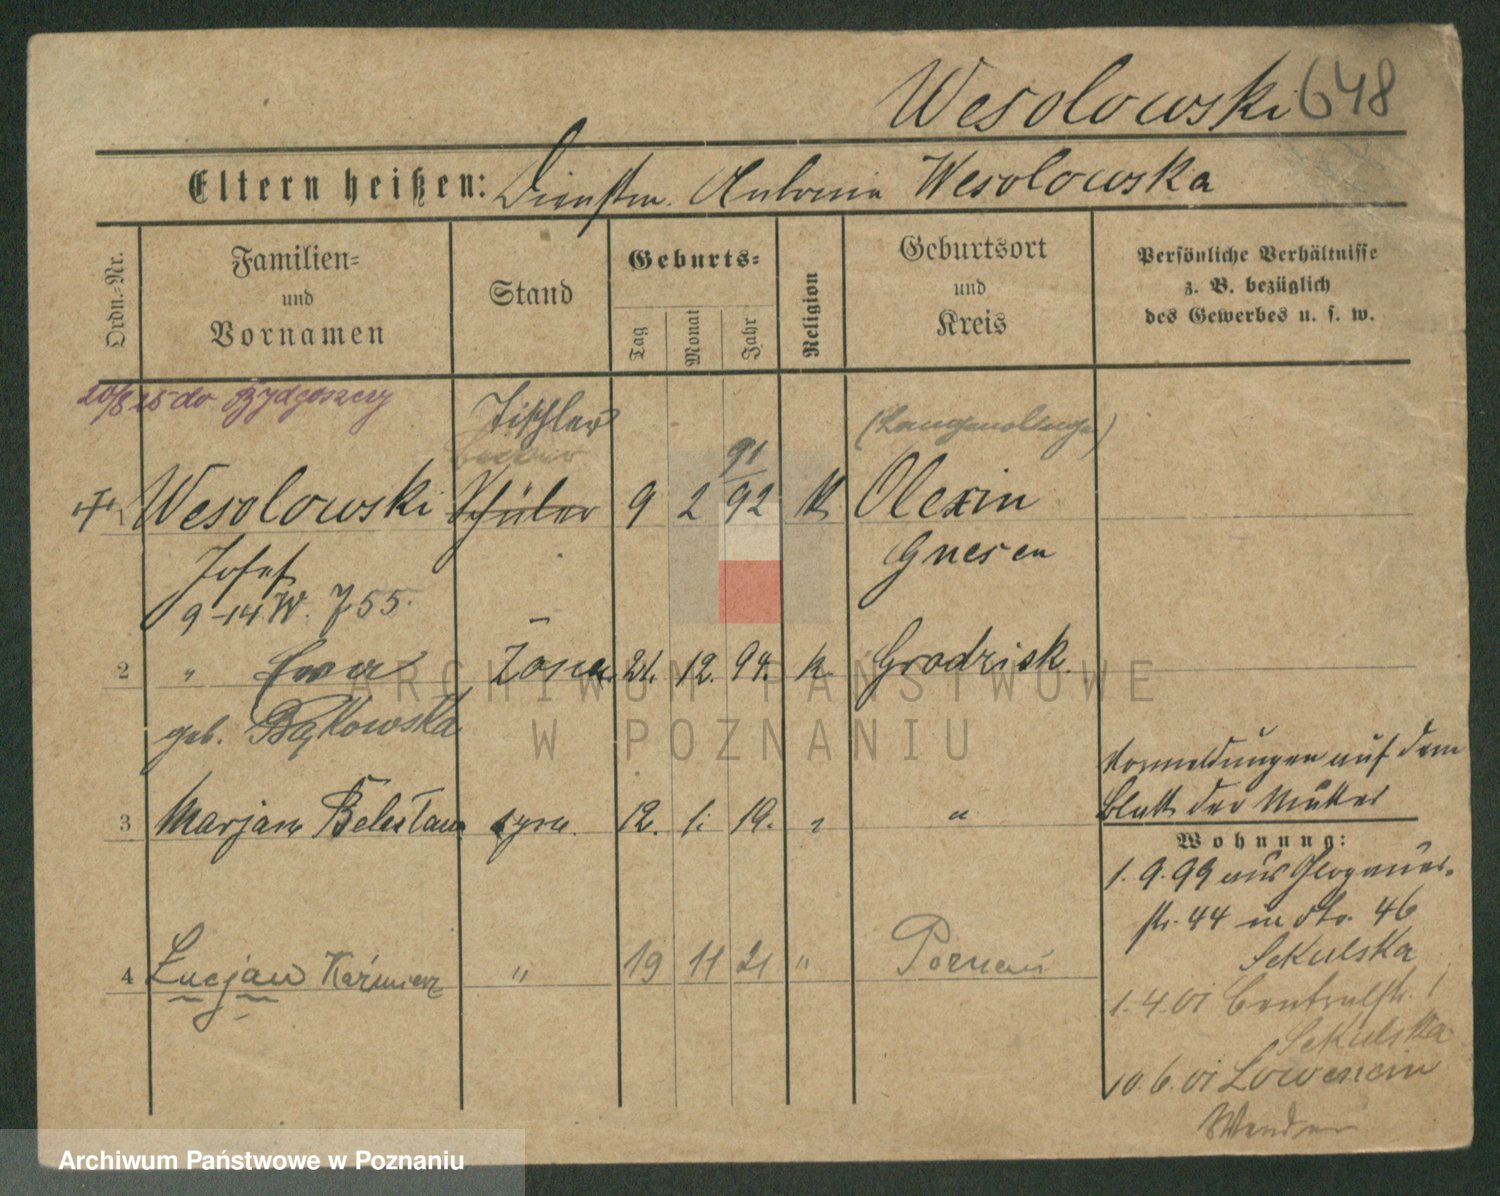 Wesolowski 648
Eltern heißen: Dienstm. Antonia Wesolowska
Ordn.-Nr.
Familien- und Vornamen
Stand
Geburts-
Tag
Monat
Jahr
Religion
Geburtsort und Kreis
Persönliche Verhältnisse
z. B. bezüglich
des Gewerbes u. s. w.
20/8 25 do Bydgoszczy
Tischler
91
Wesolowski Schüler 9 2 92 K Olexin
Josef Gnesen
9-14 W. 755
2 " Ewa Żona 21. 12. 94. k. Grodzisk
geb. Bąkowska
3 Marjan syn 12. 1. 19. " "
4 Lucjan Kaźmierz " 19 11 21 " Poznań
Vormeldungen auf dem
Blatt der Mutter
Wohnung:
1.9.99 aus Glogauer-
str. 44 n. dto. 46
Sekulska
1.4.01 Centralstr. 1
Sekulska
10.6.01 Lowencin
Wenden
ARCHIWUM PAŃSTWOWE
W POZNANIU
Archiwum Państwowe w Poznaniu